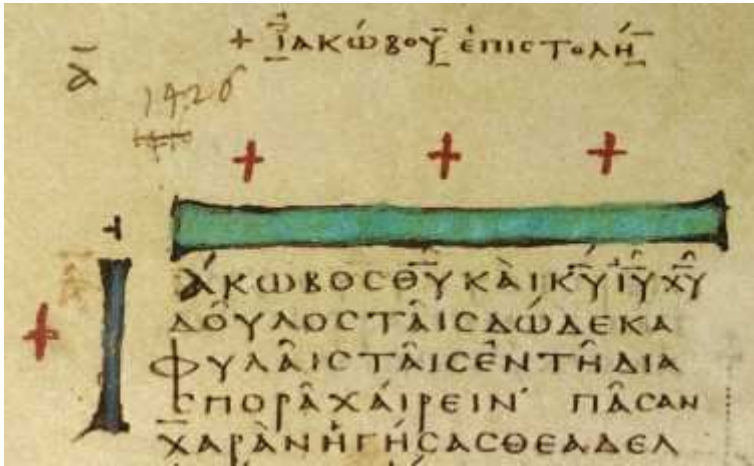 + ἸΑΚΏΒΟΥ ἘΠΙΣΤΟΛΉ
1426
ΆΚΩΒΟϹ ΘΥ ΚΑῚ ΚΥ ΙΥ ΧΥ
ΔΟΥ͂ΛΟϹ ΤΑΙ͂Ϲ ΔΏΔΕΚΑ
ΦΥΛΑΙ͂Ϲ ΤΑΙ͂Ϲ ἘΝ ΤΗ͂ ΔΙΑ
ϹΠΟΡΑ͂ ΧΑΊΡΕΙΝ· ΠΑ͂ϹΑΝ
ΧΑΡᾺΝ ἩΓΉϹΑϹΘΕ ΑΔΕΛ